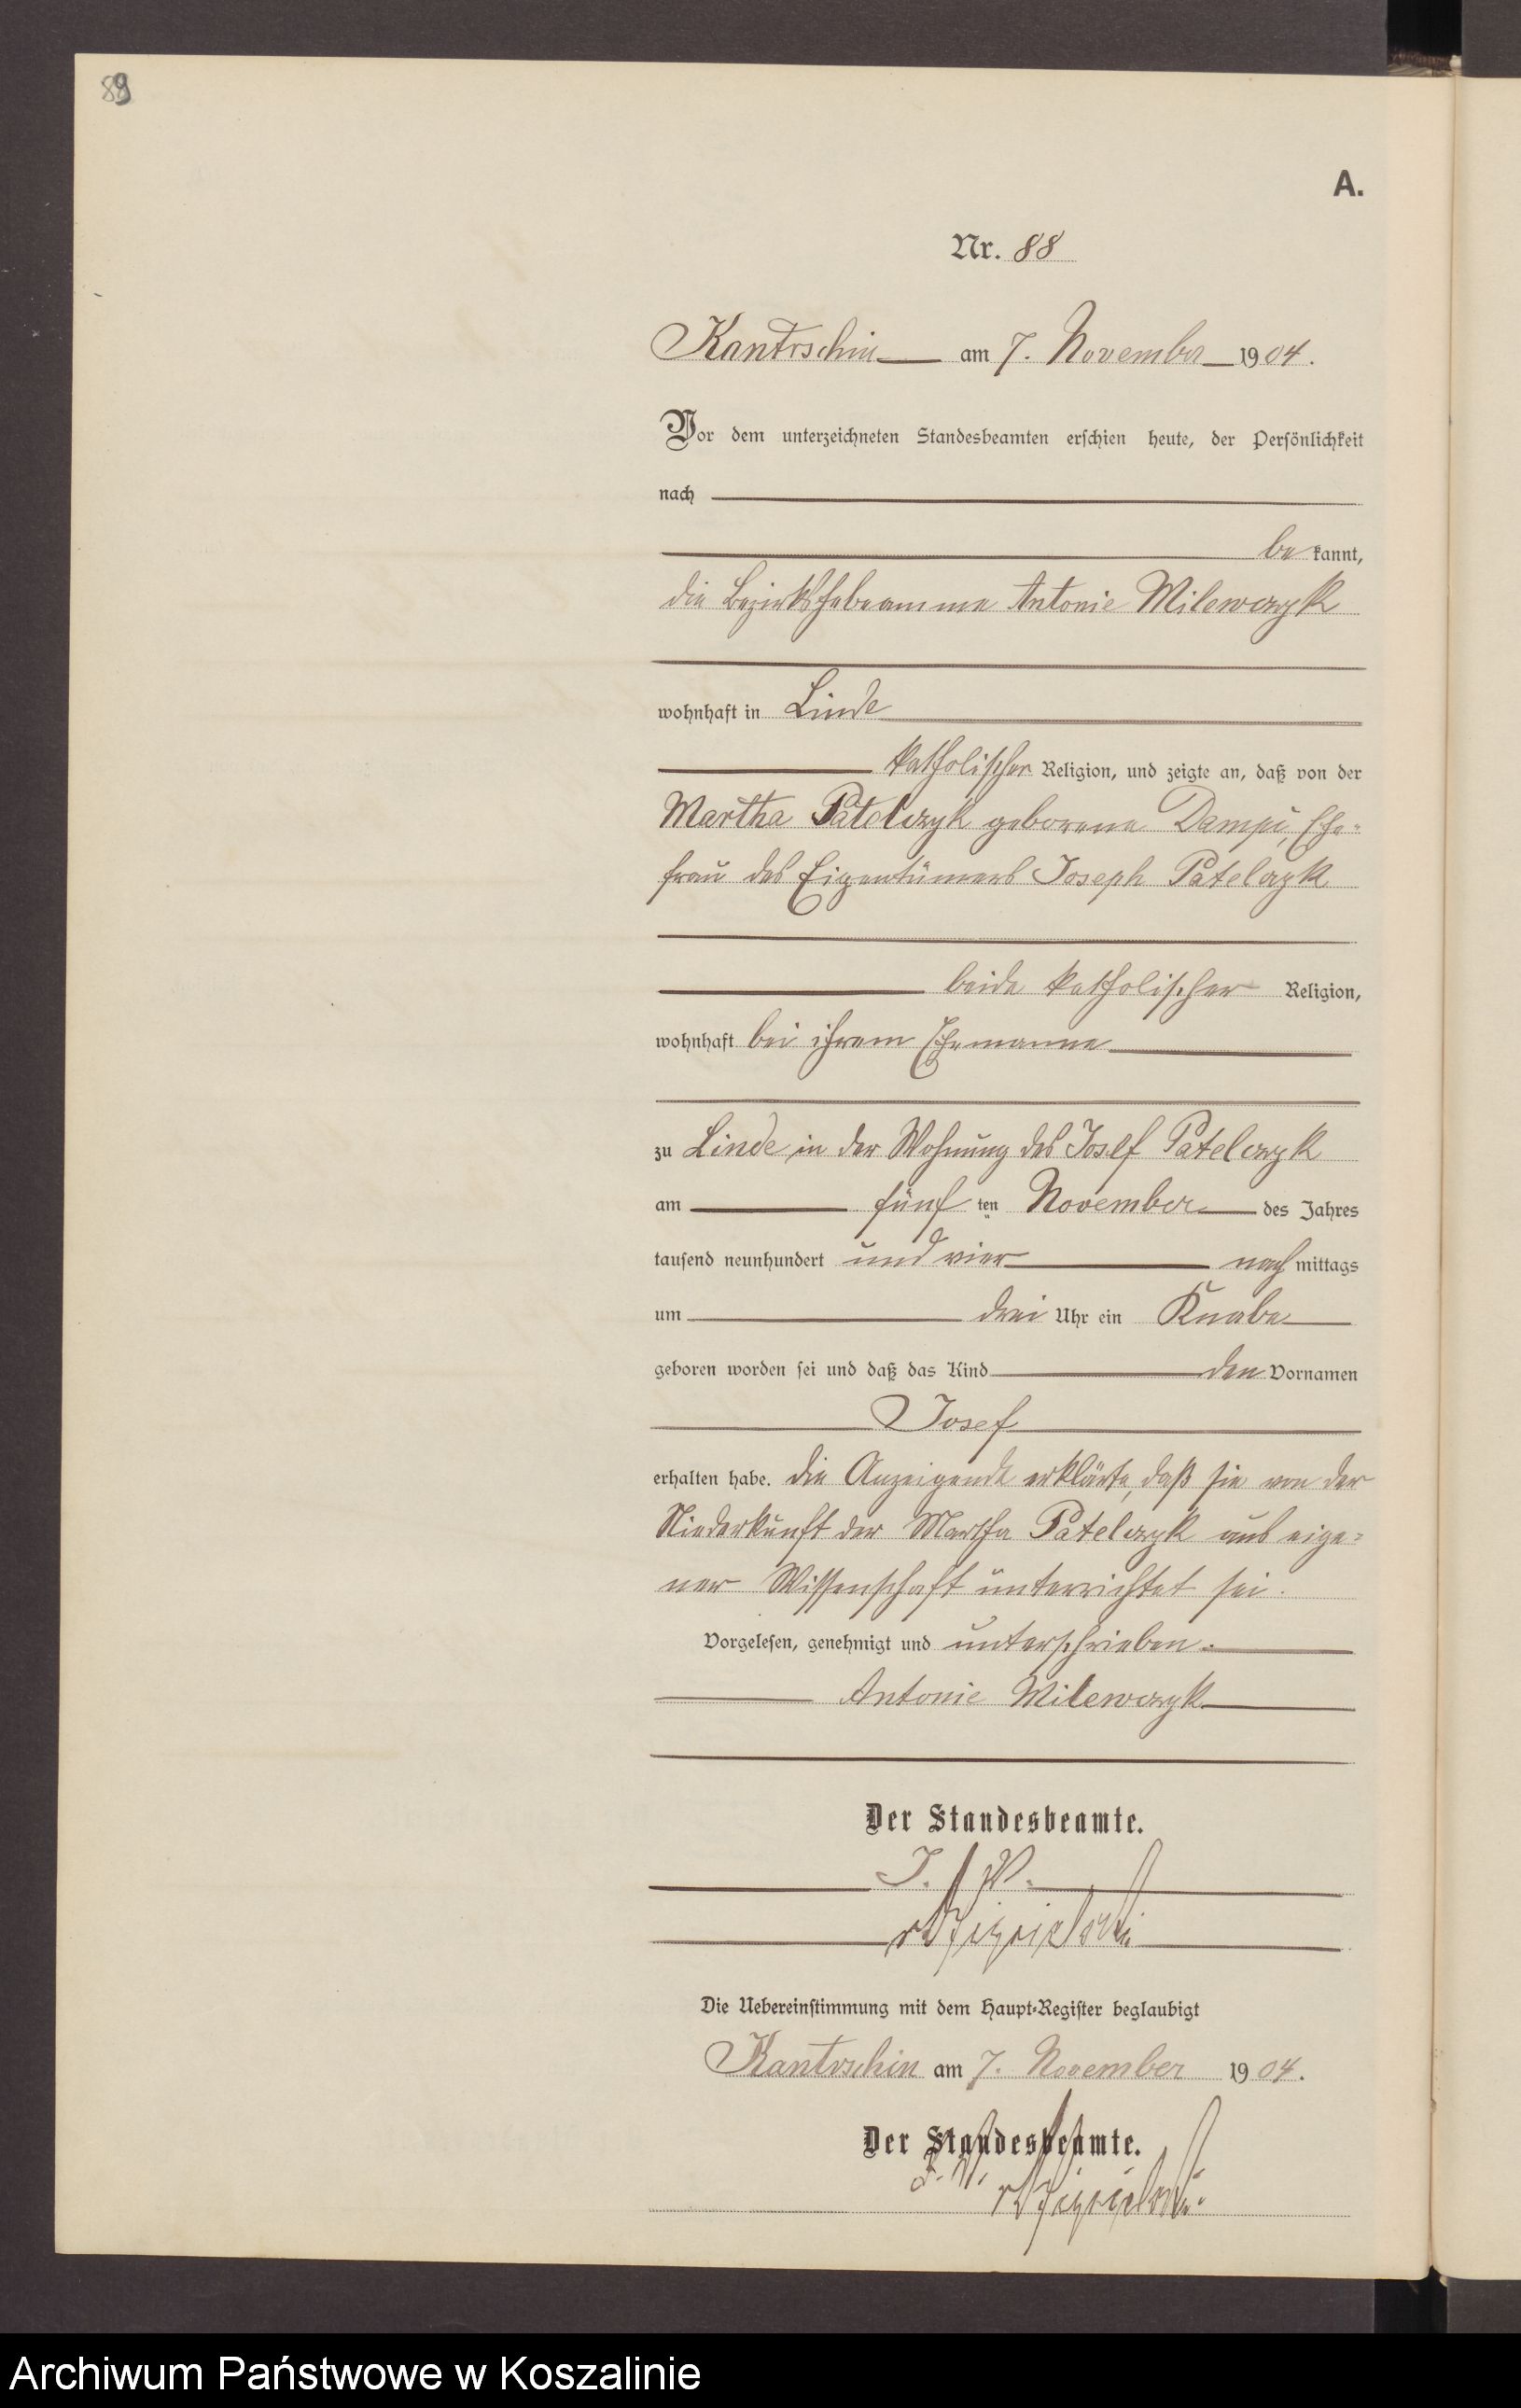 89
A.
Nr. 88
Kantrschin am 7. November 1904.
Vor dem unterzeichneten Standesbeamten erschien heute, der Persönlichkeit
nach
bekannt,
die Bezirkshebeamme Antonie Milewczyk
wohnhaft in Linde
katholischer Religion, und zeigte an, daß von der
Martha Patelczyk geborene Dampi, Ehe-
frau des Eigentümers Joseph Patelczyk
beide katholischer Religion,
wohnhaft bei ihrem Ehemanne
zu Linde in der Wohnung des Josef Patelczyk
am fünften November des Jahres
tausend neunhundert und vier nachmittags
um drei Uhr ein Knabe
geboren worden sei und daß das Kind den Vornamen
Josef
erhalten habe. die Anzeigende erklärte, daß sie von der
Niederkunft der Martha Patelczyk aus eige-
ner Wissenschaft unterrichtet sei.
Vorgelesen, genehmigt und unterschrieben.
Antonie Milewczyk
Der Standesbeamte.
J. V.
Die Uebereinstimmung mit dem Haupt-Register beglaubigt
Kantrschin am 7. November 1904.
Der Standesbeamte.
J. V.
Archiwum Państwowe w Koszalinie